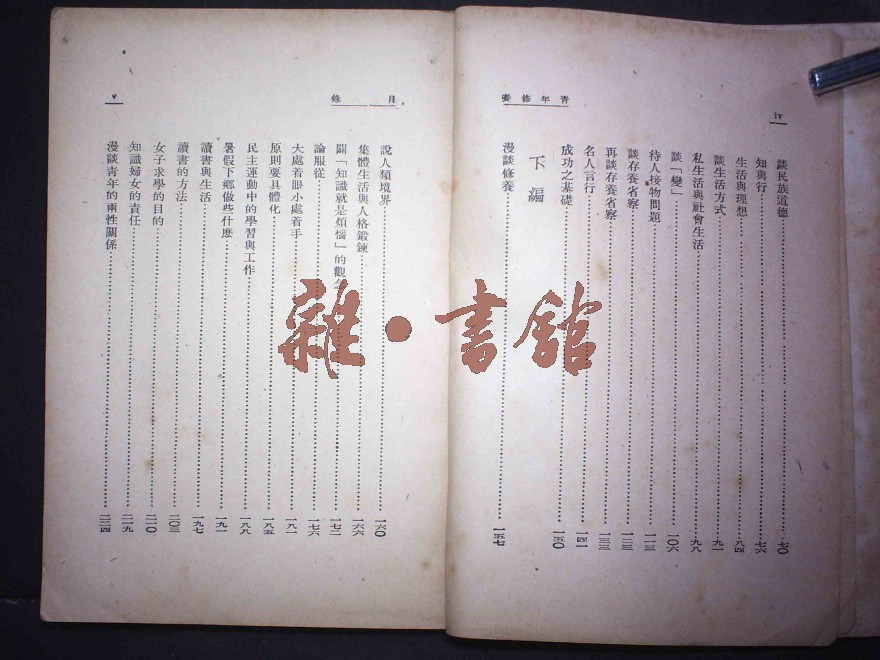 iv
青年修養
談民族道德……七〇
知與行……七六
生活與理想……八四
談生活方式……九一
私生活與社會生活……九八
談「變」……一〇六
待人接物問題……一一三
談存養省察……一二三
再談存養省察……一三三
名人言行……一四一
成功之基礎……一五〇
下編
漫談修養……一五七
目錄
v
說人類境界……一六〇
集體生活與人格鍛鍊……一六六
闢「知識就是煩惱」的觀念……一七二
論服從……一七六
大處着眼小處着手……一八一
原則要具體化……一八五
民主運動中的學習與工作……一八八
暑假下鄉做些什麽……一九一
讀書與生活……一九七
讀書的方法……二〇三
女子求學的目的……二一〇
知識婦女的責任……二一九
漫談青年的兩性關係……二二四
雜·書館